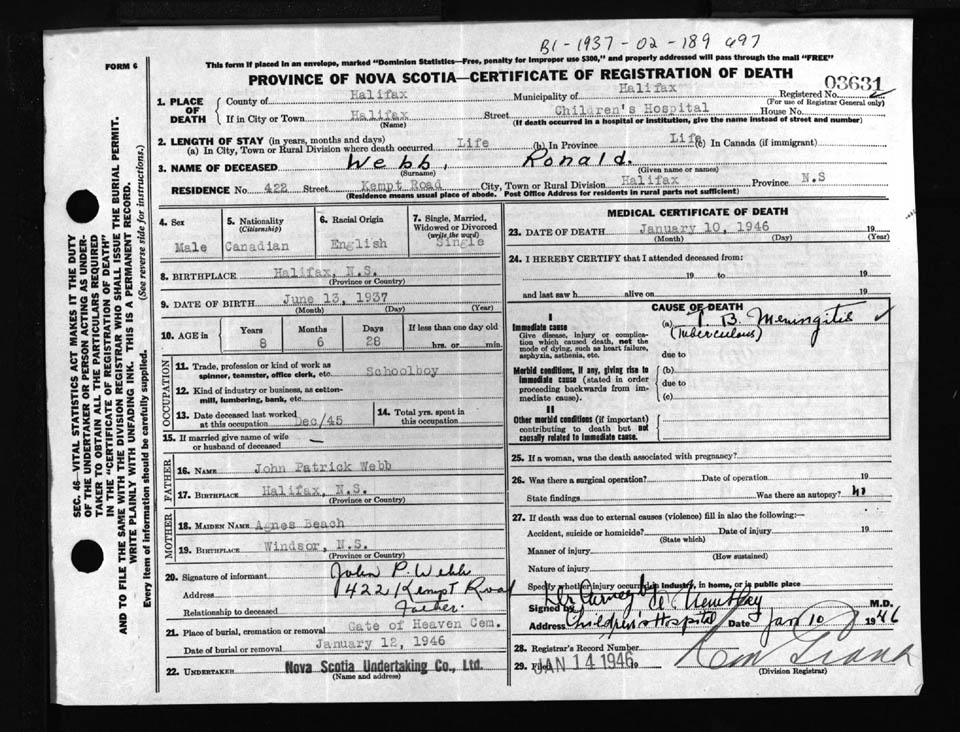 B1-1937-02-189 697
FORM 6
This form if placed in an envelope, marked "Dominion Statistics—Free, penalty for improper use $300," and properly addressed will pass through the mail "FREE"
PROVINCE OF NOVA SCOTIA—CERTIFICATE OF REGISTRATION OF DEATH
03631
1. PLACE OF DEATH
County of Halifax Municipality of Halifax Registered No.
(For use of Registrar General only)
If in City or Town Halifax Street Children's Hospital House No.
(Name) (If death occurred in a hospital or institution, give the name instead of street and number)
2. LENGTH OF STAY (in years, months and days)
(a) In City, Town or Rural Division where death occurred Life (b) In Province Life (c) In Canada (if immigrant)
3. NAME OF DECEASED Webb, Ronald.
(Surname) (Given name or names)
RESIDENCE No. 422 Street Kempt Road City, Town or Rural Division Halifax Province N.S
(Residence means usual place of abode. Post Office Address for residents in rural parts not sufficient)
4. Sex Male
5. Nationality (Citizenship) Canadian
6. Racial Origin English
7. Single, Married, Widowed or Divorced (write the word) Single
8. BIRTHPLACE Halifax, N.S.
(Province or Country)
9. DATE OF BIRTH June 13, 1937
(Month) (Day) (Year)
10. AGE in Years Months Days If less than one day old
8 6 28 hrs. or min.
OCCUPATION
11. Trade, profession or kind of work as spinner, teamster, office clerk, etc. Schoolboy
12. Kind of industry or business, as cotton-mill, lumbering, bank, etc.
13. Date deceased last worked at this occupation Dec/45
14. Total yrs. spent in this occupation
15. If married give name of wife or husband of deceased —
FATHER
16. NAME John Patrick Webb
17. BIRTHPLACE Halifax, N.S.
(Province or Country)
MOTHER
18. MAIDEN NAME Agnes Beach
19. BIRTHPLACE Windsor, N.S.
(Province or Country)
20. Signature of informant John P. Webb
Address 422 Kempt Road
Relationship to deceased Father.
21. Place of burial, cremation or removal Gate of Heaven Cem.
Date of burial or removal January 12, 1946
22. UNDERTAKER Nova Scotia Undertaking Co., Ltd.
(Name and address)
MEDICAL CERTIFICATE OF DEATH
23. DATE OF DEATH January 10, 1946 19
(Month) (Day) (Year)
24. I HEREBY CERTIFY that I attended deceased from:
19 to 19
and last saw h alive on 19
CAUSE OF DEATH
I
Immediate cause
Give disease, injury or complication which caused death, not the mode of dying, such as heart failure, asphyxia, asthenia, etc.
(a) T. B. Meningitis
(Tuberculous)
due to
Morbid conditions, if any, giving rise to immediate cause (stated in order proceeding backwards from immediate cause).
(b)
due to
(c)
II
Other morbid conditions (if important) contributing to death but not causally related to immediate cause.
25. If a woman, was the death associated with pregnancy?
26. Was there a surgical operation? Date of operation 19
State findings Was there an autopsy?
27. If death was due to external causes (violence) fill in also the following:—
Accident, suicide or homicide? Date of injury 19
(State which)
Manner of injury
(How sustained)
Nature of injury
Specify whether injury occurred in industry, in home, or in public place
Signed by M.D.
Address Children's Hospital Date Jan 10 1946
28. Registrar's Record Number
29. Filed JAN 14 1946 19
(Division Registrar)
SEC. 46—VITAL STATISTICS ACT MAKES IT THE DUTY
OF THE UNDERTAKER OR PERSON ACTING AS UNDER-
TAKER TO OBTAIN ALL THE PARTICULARS REQUIRED
IN THE "CERTIFICATE OF REGISTRATION OF DEATH"
AND TO FILE THE SAME WITH THE DIVISION REGISTRAR WHO SHALL ISSUE THE BURIAL PERMIT.
WRITE PLAINLY WITH UNFADING INK. THIS IS A PERMANENT RECORD.
Every item of information should be carefully supplied. (See reverse side for instructions.)